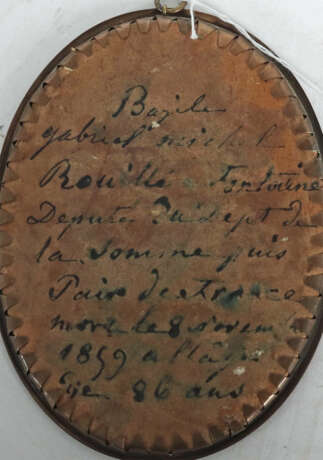 Bazile
gabriel michel
Rouillé Fontaine
Deputé du dept de
la Somme puis
Pair de France
mort le 8 novem
1859 a l'âge
de 86 ans